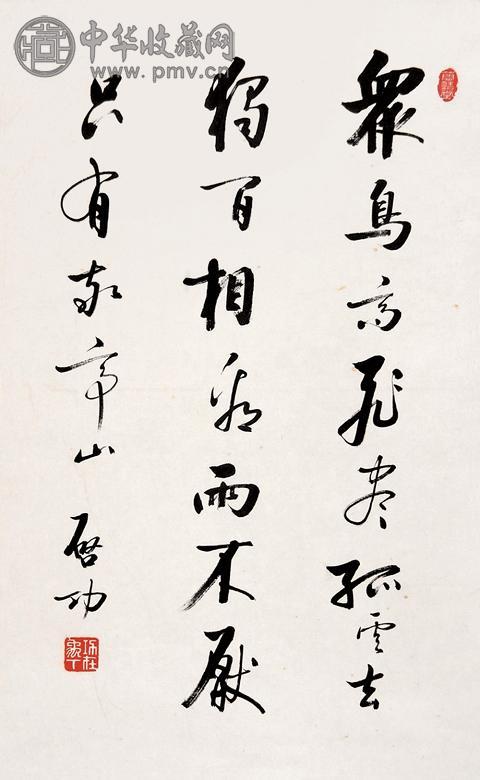 中华收藏网
www.pmv.cn
眾鳥高飛盡孤雲去
獨閒相看兩不厭
只有敬亭山 啟功